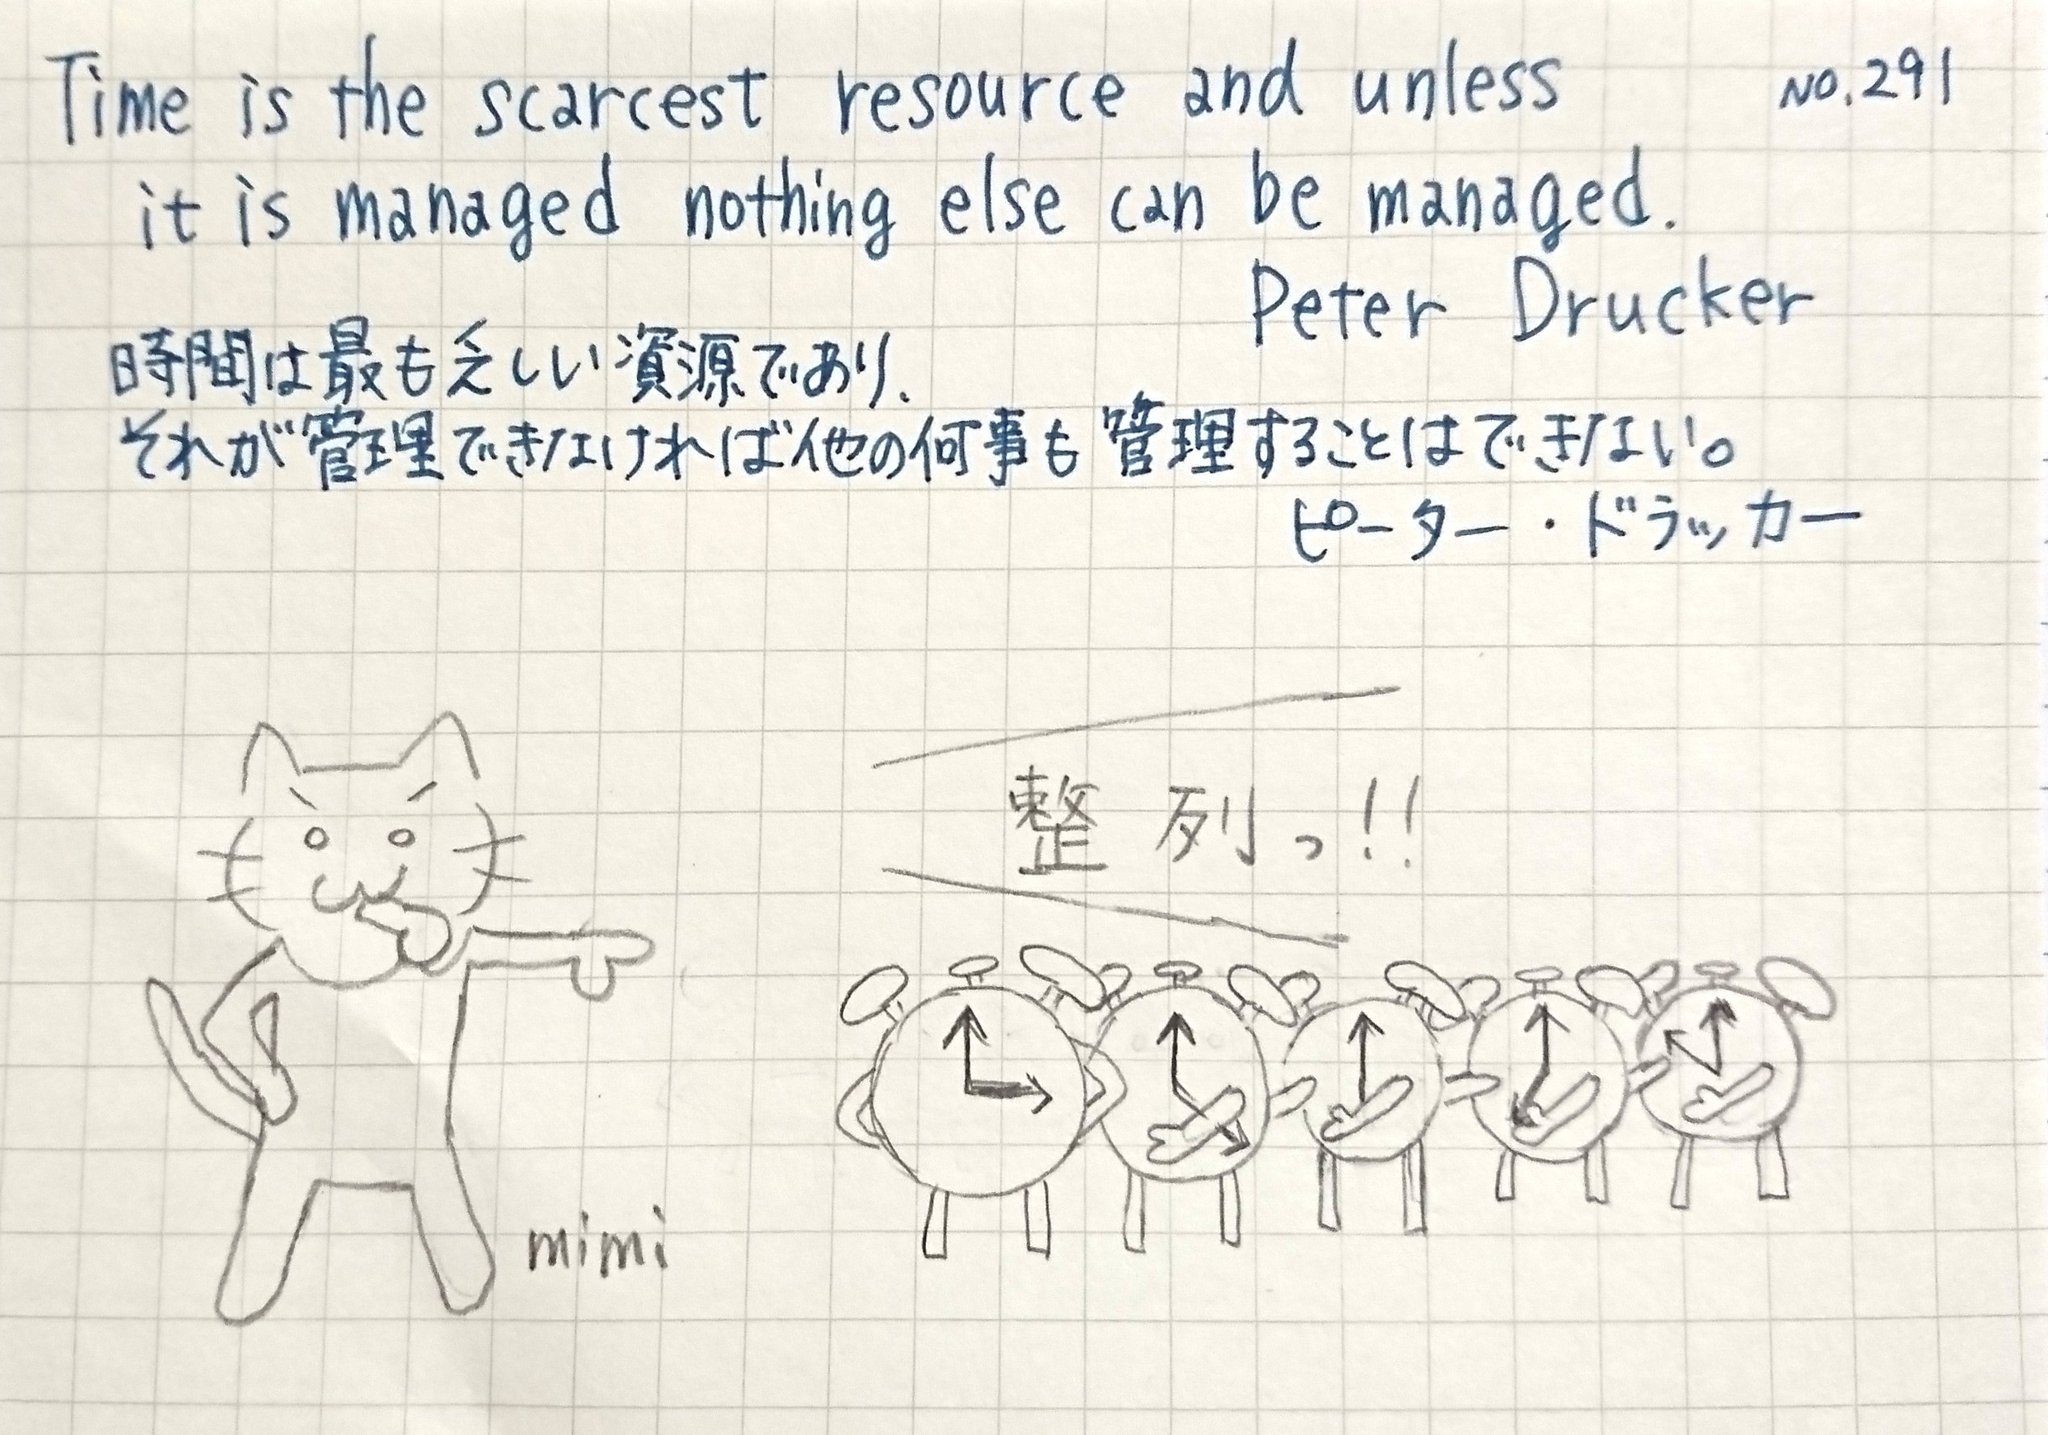 Time is the scarcest resource and unless NO.291
it is managed nothing else can be managed.
Peter Drucker
時間は最も乏しい資源であり、
それが管理できなければ他の何事も管理することはできない。
ピーター・ドラッカー
整列っ!!
mimi